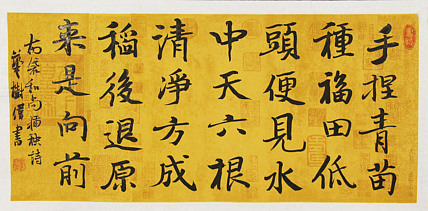 手捏青苗
種福田低
頭便見水
中天六根
清淨方成
稻後退原
来是向前
布袋和尚插秧詩
書